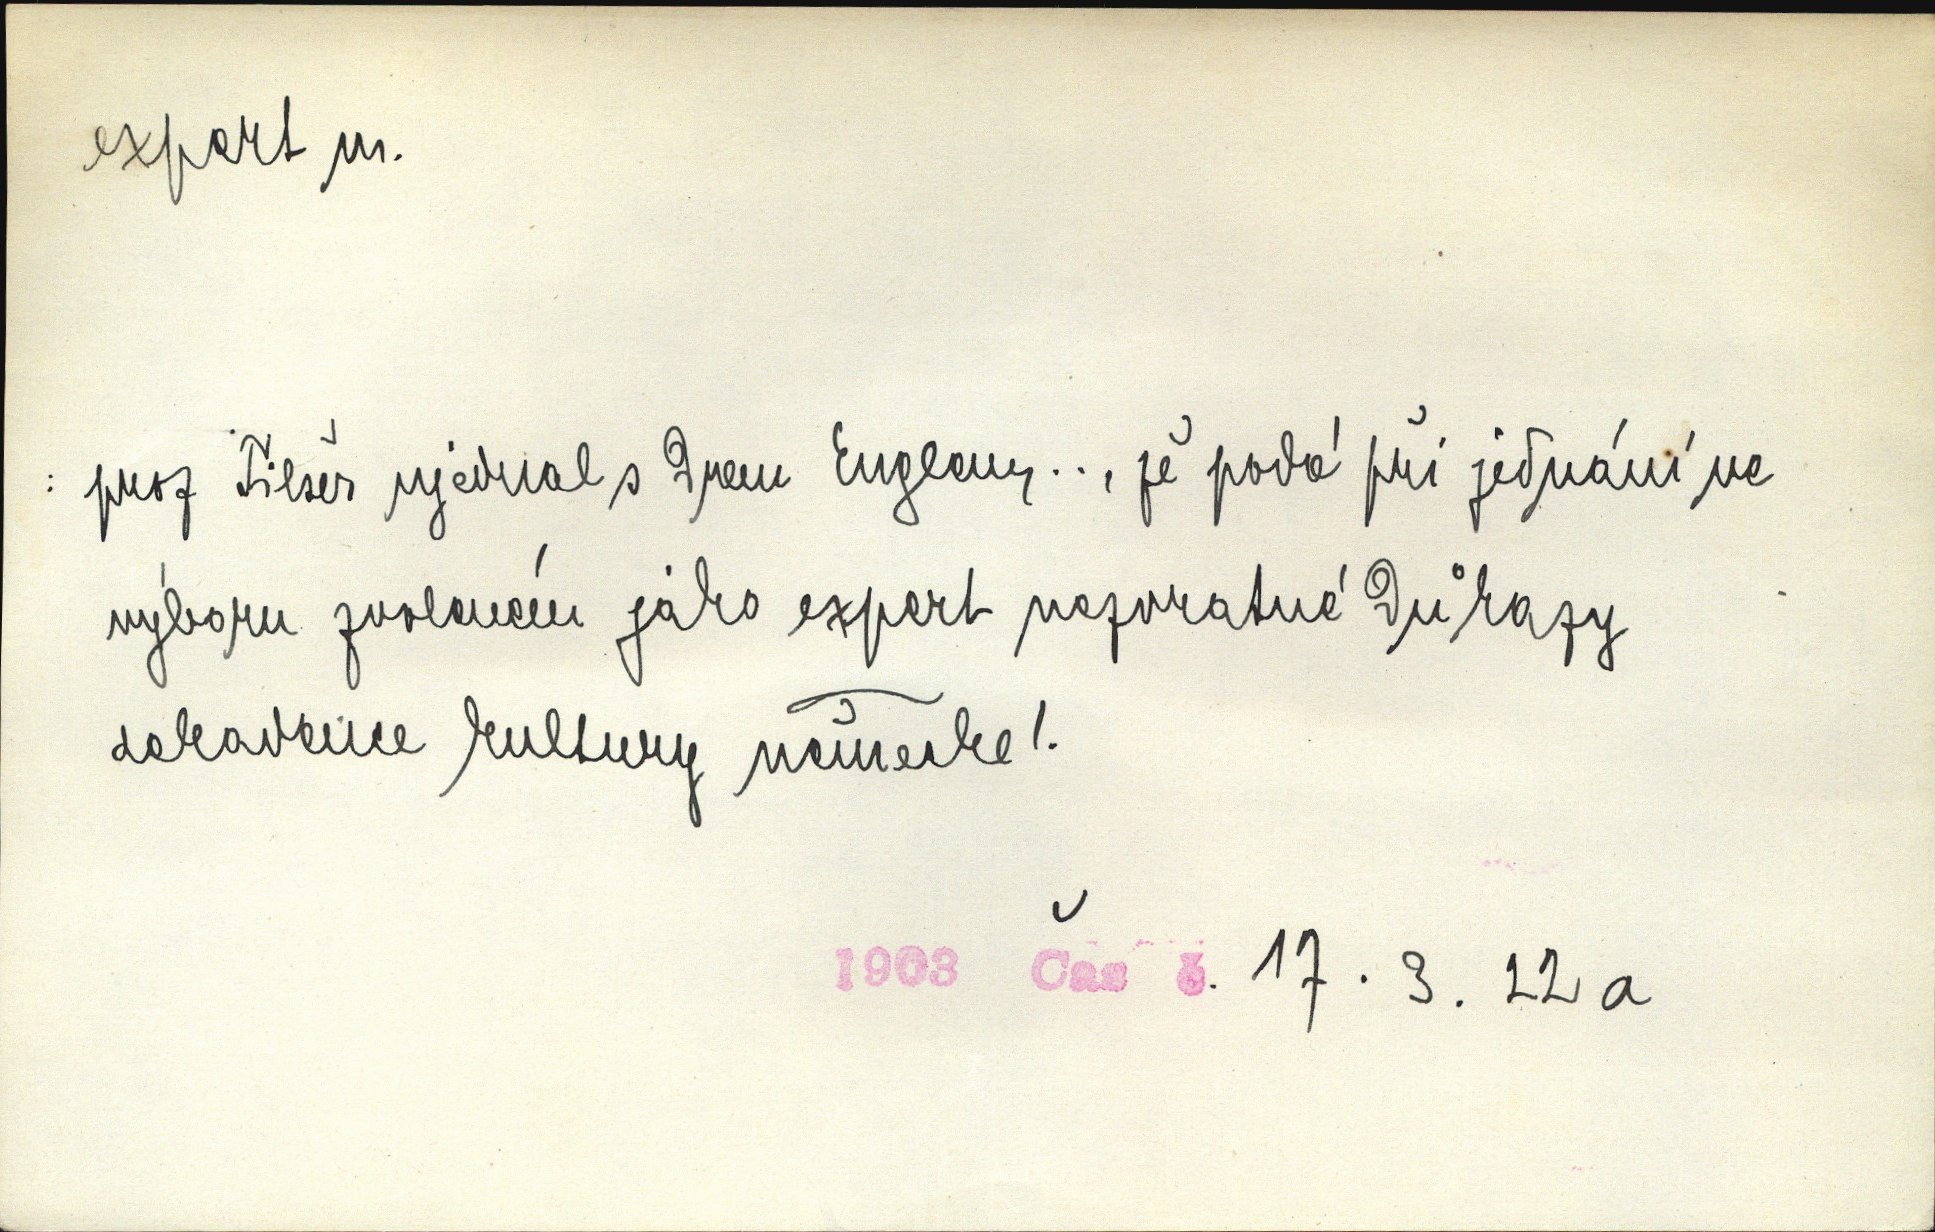 expert m.
: prof Filser ujednal s Drem Englem, .., že podá při jednání ve
výboru zvoleném jako expert nezvratné důkazy
dekadence kultury německé.
1903 Čas č. 17. 3. 22a